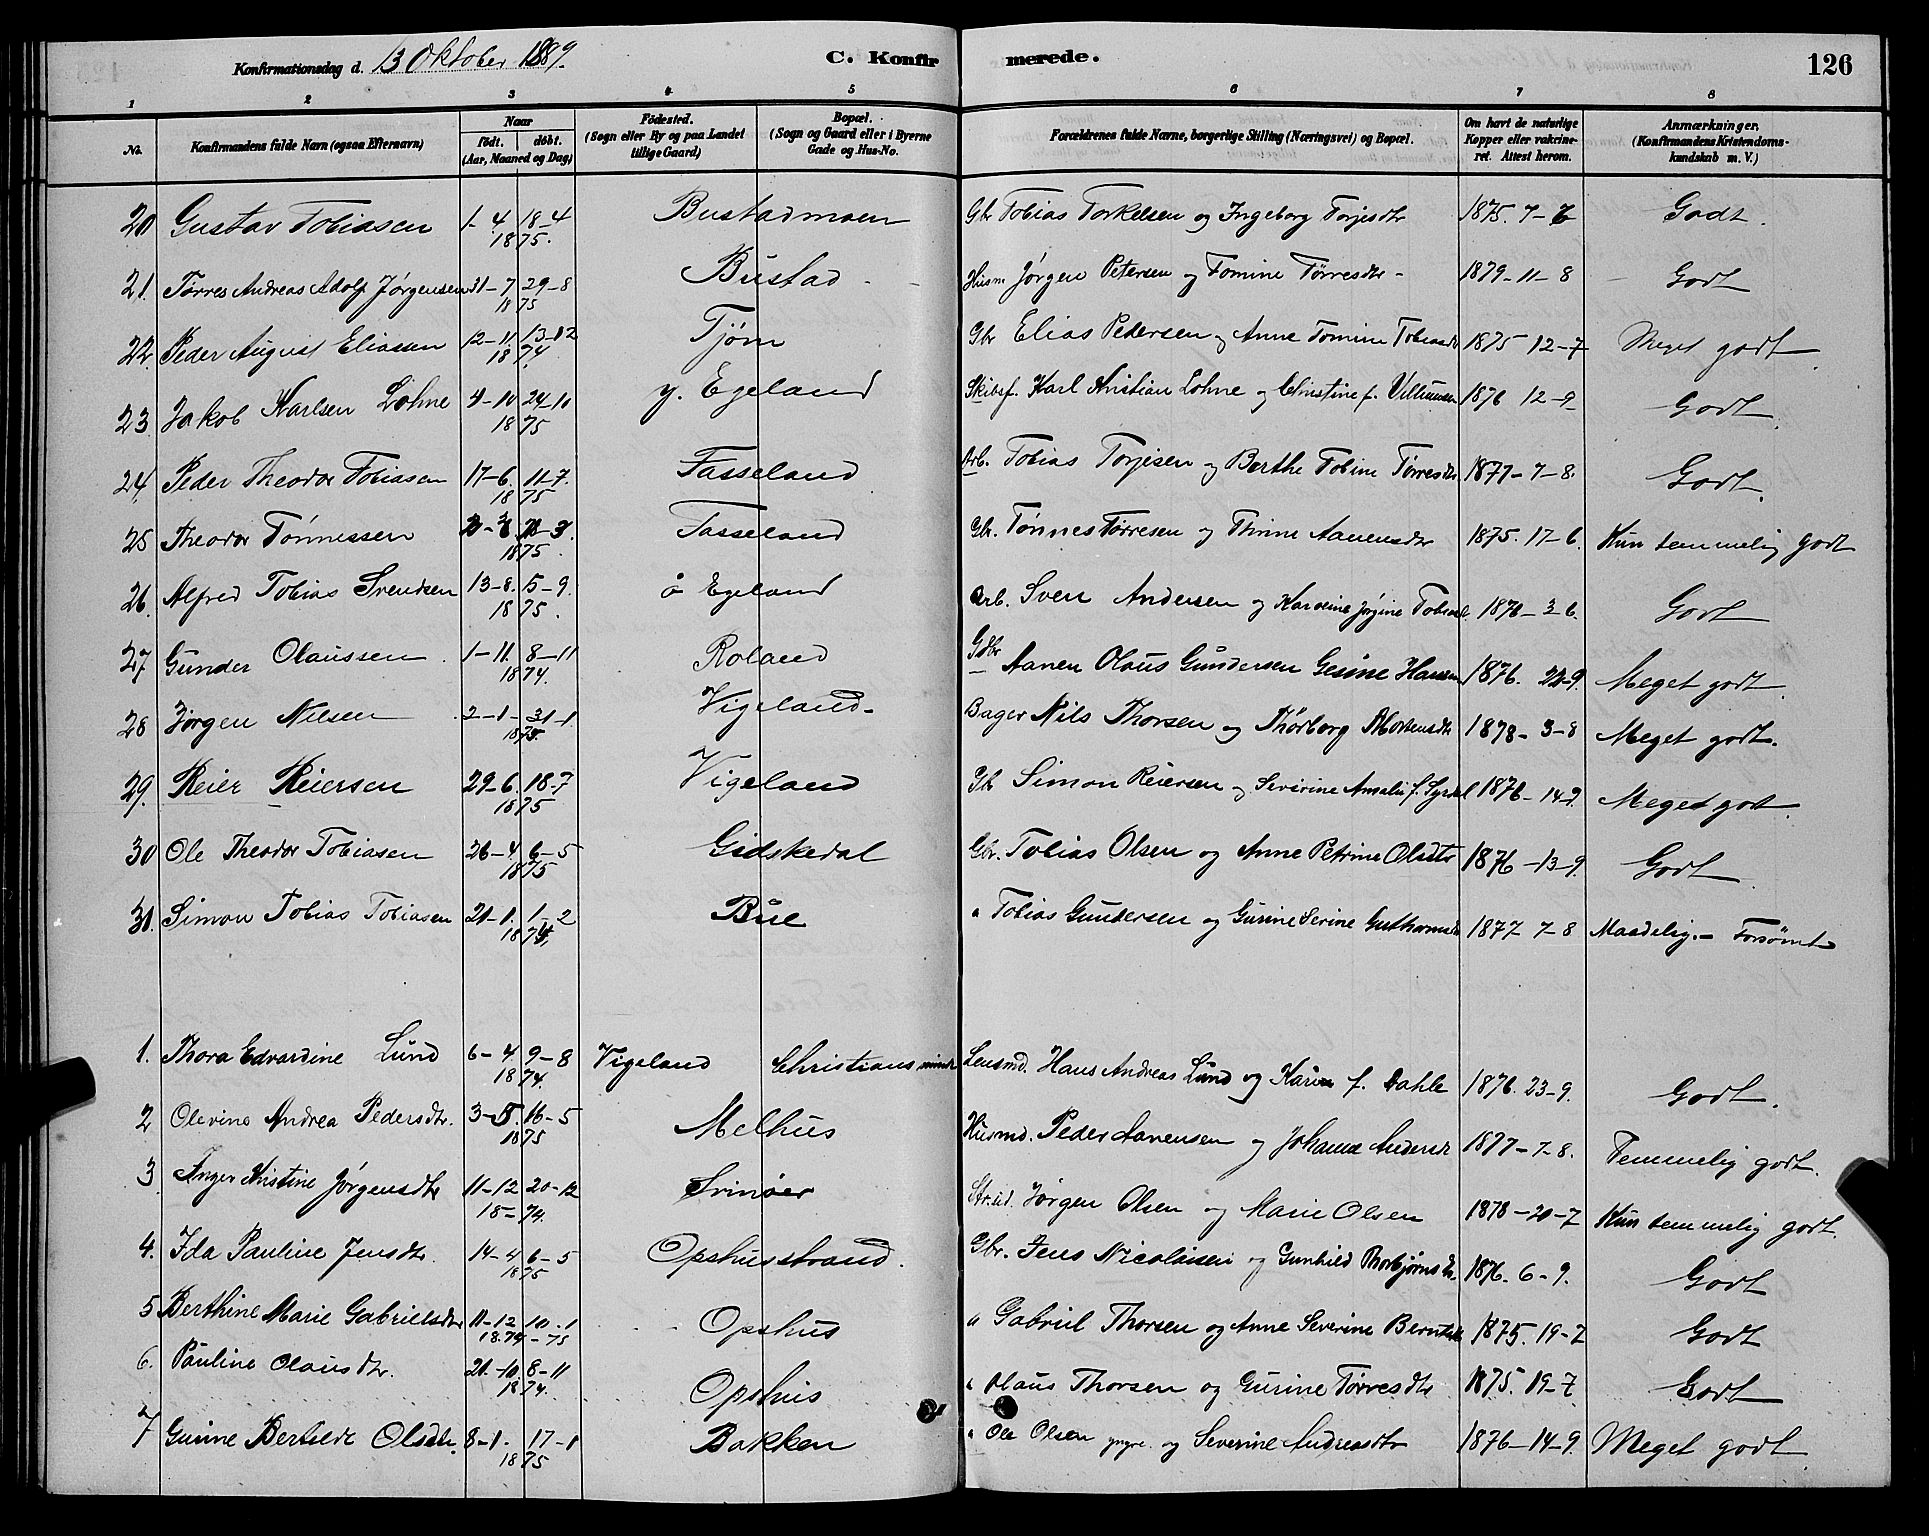 Konfirmationsdag d. 13 Oktober 1889. C. Konfirmerede. 126
1 2 3 4 5 6 7 8
No. Konfirmandens fulde Navn (ogsaa Efternavn) Naar födt. döbt. (Aar, Maaned og Dag) Födested. (Sogn eller By og paa Landet tillige Gaard) Bopæl. (Sogn og Gaard eller i Byerne Gade og Hus-No. Forældrenes fulde Navne, borgerlige Stilling (Næringsvei) og Bopæl. Om havt de naturlige Kopper eller vakcineret. Attest herom. Anmærkninger. (Konfirmandens Kristendomskundskab m. V.)
20 Gustav Tobiasen 1-4 18-4 1875. Bustadmoen Gbr Tobias Torkelsen og Ingeborg Torjesdtr 1875. 7-7 Godt.
21. Tørres Andreas Adolf Jørgensen 31-7 29-8 1875 Bustad Husm Jørgen Petersen og Tomine Tørresdtr 1879-11-8 Godt
22. Peder August Eliassen 12-11 13-12 1874. Tjøm Gbr Elias Pedersen og Anne Tomine Tobiasdt 1875 12-7 Meget godt
23. Jakob Karlsen Lohne 4-10 24-10 1875 y. Egeland Skibsf. Karl Kristian Lohne og Christine f. Villumsen 1876 12-9 Godt.
24. Peder Theodor Tobiasen 17-6. 11-7. 1875 Fasseland Arb. Tobias Torjisen og Berthe Tobine Tørresdtr 1877-7-8. Godt.
25 Theodor Tönnessen 1875. Fasseland Gbr. Tönnes Tørresen og Thine Aanensdtr 1875. 17-6. Kun temmelig godt
26. Alfred Tobias Svendsen 13-8. 5-9. 1875. ö Egeland Arb. Sven Andersen og Karoline Jørgine Tobiasd. 1876-3-6. Godt
27 Gunder Olaussen 1-11. 8-11 1874. Roland Gdbr Aanen Olaus Gundersen Gesine Hansen 1876. 22-9. Meget godt
28 Jørgen Nilsen 2-1- 31-1. 1875. Vigeland Bager Nils Thorsen og Thorborg Mortensdtr 1878-3-8 Meget godt.
29. Reier Reiersen 29-6. 18-7 1875 Vigeland Gbr Simon Reiersen og Severine Amalie f. Syrdal 1876-14-9. Meget godt
30 Ole Theodor Tobiasen 26-4 6-5 1875 Gidskedal Gbr. Tobias Olsen og Anne Petrine Olsdtr 1876-13-9. Godt
31. Simon Tobias Tobiasen 21-1. 1-2 Büe " Tobias Gundersen og Gurine Serine Guthormsdt 1877 7-8 Maadelig.- Forsömt
1. Thora Edvardine Lund 6-4. 9-8 1874. Vigeland Christiansminde Lensmd. Hans Andreas Lund og Karen f. Dahle 1876. 23-9. Godt.
2 Olevine Andrea Pedersdtr. 3-5. 16-5 1875 Melhus Husmd. Peder Aanensen og Johanne Andersdt 1877-7-8. Temmelig godt.
3. Inger Kristine Jørgensdtr 11-12 20-12 18-74. Svinöer Strand. Jørgen Olsen og Marie Olsen 1878-20-7 Kun temmelig godt.
4. Ida Pauline Jensdtr. 14-4 6-5 1875 Opshusstrand. Gbr. Jens Nicolaisen og Gunhild Thorbjørnsdtr. 1876. 6-9. Godt
5 Berthine Marie Gabrielsdtr 11-12 10-1 1874-75 Opshus " Gabriel Thorsen og Anne Severine Berntsdt 1875. 19-7 Godt
6. Pauline Olausdtr. 21-10. 8-11 1874. Opshus " Olaus Thorsen og Gurine Tørresdtr 1875. 19-7 Godt
7 Gurine Bertilde Olsdtr. 8-1. 17-1 1875 Bakken " Ole Olsen yngre. og Severine Andreasdtr 1876-14-9. Meget godt